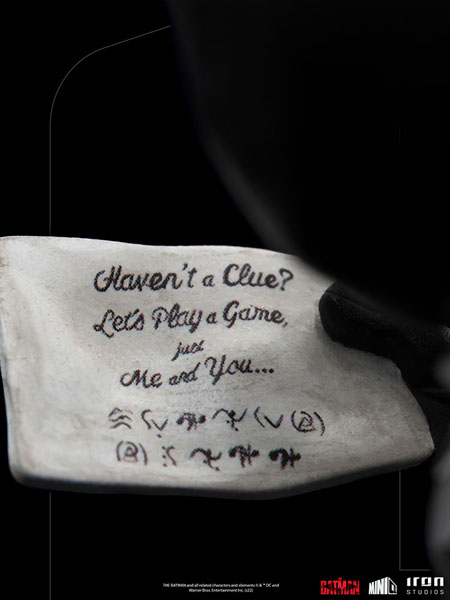 Haven't a Clue?
Let's Play a Game,
just
Me and You...
THE BATMAN and all related characters and elements © & ™ DC and
Warner Bros. Entertainment Inc. (s22)
THE BATMAN MINICO IRON
STUDIOS